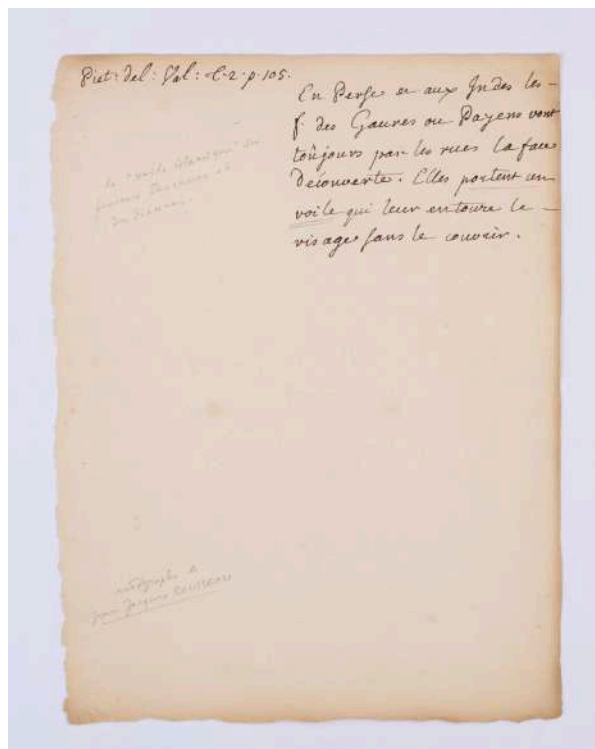 Piet: del: Val: t. 2. p. 105.
En Perse et aux Indes les
f. des Gaures ou Payens vont
toûjours par les rues la face
découverte. Elles portent un
voile qui leur entoure le
visage sans le couvrir.
le "voile islamique" des
femmes
autographe de
Jean Jacques ROUSSEAU